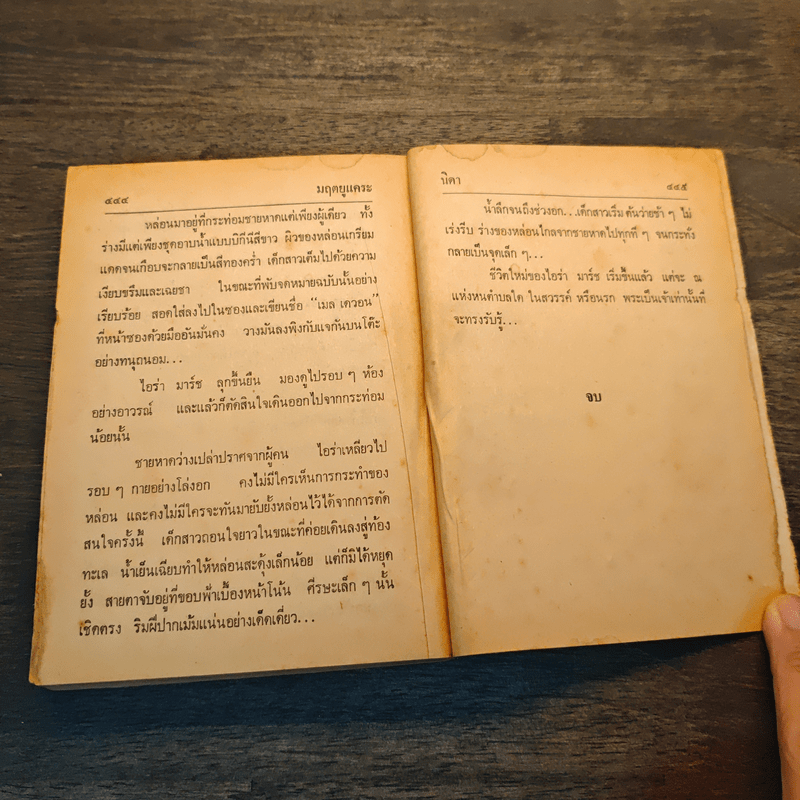 ๔๔๔
มฤตยูแคระ
หล่อนมาอยู่ที่กระท่อมชายหาดแต่เพียงผู้เดียว ทั้ง
ร่างมีแต่เพียงชุดอาบน้ำแบบบิกินีสีขาว ผิวของหล่อนเกรียม
แดดจนเกือบจะกลายเป็นสีทองคร่ำ เด็กสาวเต็มไปด้วยความ
เงียบขรึมและเฉยชา ในขณะที่พับจดหมายฉบับนั้นอย่าง
เรียบร้อย สอดใส่ลงไปในซองและเขียนชื่อ “เมล เดวอน”
ที่หน้าซองด้วยมืออันมั่นคง วางมันลงพิงกับแจกันบนโต๊ะ
อย่างทนุถนอม...
ไอร่า มาร์ช ลุกขึ้นยืน มองดูไปรอบ ๆ ห้อง
อย่างอาวรณ์ และแล้วก็ตัดสินใจเดินออกไปจากกระท่อม
น้อยนั้น
ชายหาดว่างเปล่าปราศจากผู้คน ไอร่าเหลียวไป
รอบ ๆ กายอย่างโล่งอก คงไม่มีใครเห็นการกระทำของ
หล่อน และคงไม่มีใครจะทันมายับยั้งหล่อนไว้ได้จากการตัด
สนใจครั้งนี้ เด็กสาวถอนใจยาวในขณะที่ค่อยเดินลงสู่ท้อง
ทะเล น้ำเย็นเฉียบทำให้หล่อนสะดุ้งเล็กน้อย แต่ก็มิได้หยุด
ยั้ง สายตาจับอยู่ที่ขอบฟ้าเบื้องหน้าโน้น ศีรษะเล็ก ๆ นั้น
เชิดตรง ริมฝีปากเม้มแน่นอย่างเด็ดเดี่ยว...
นิดา
๔๔๕
น้ำลึกจนถึงช่วงอก...เด็กสาวเริ่มต้นว่ายช้า ๆ ไม่
เร่งรีบ ร่างของหล่อนไกลจากชายหาดไปทุกที ๆ จนกระทั่ง
กลายเป็นจุดเล็ก ๆ...
ชีวิตใหม่ของไอร่า มาร์ช เริ่มขึ้นแล้ว แต่จะ ณ
แห่งหนตำบลใด ในสวรรค์ หรือนรก พระเป็นเจ้าเท่านั้นที่
จะทรงรับรู้...
จบ